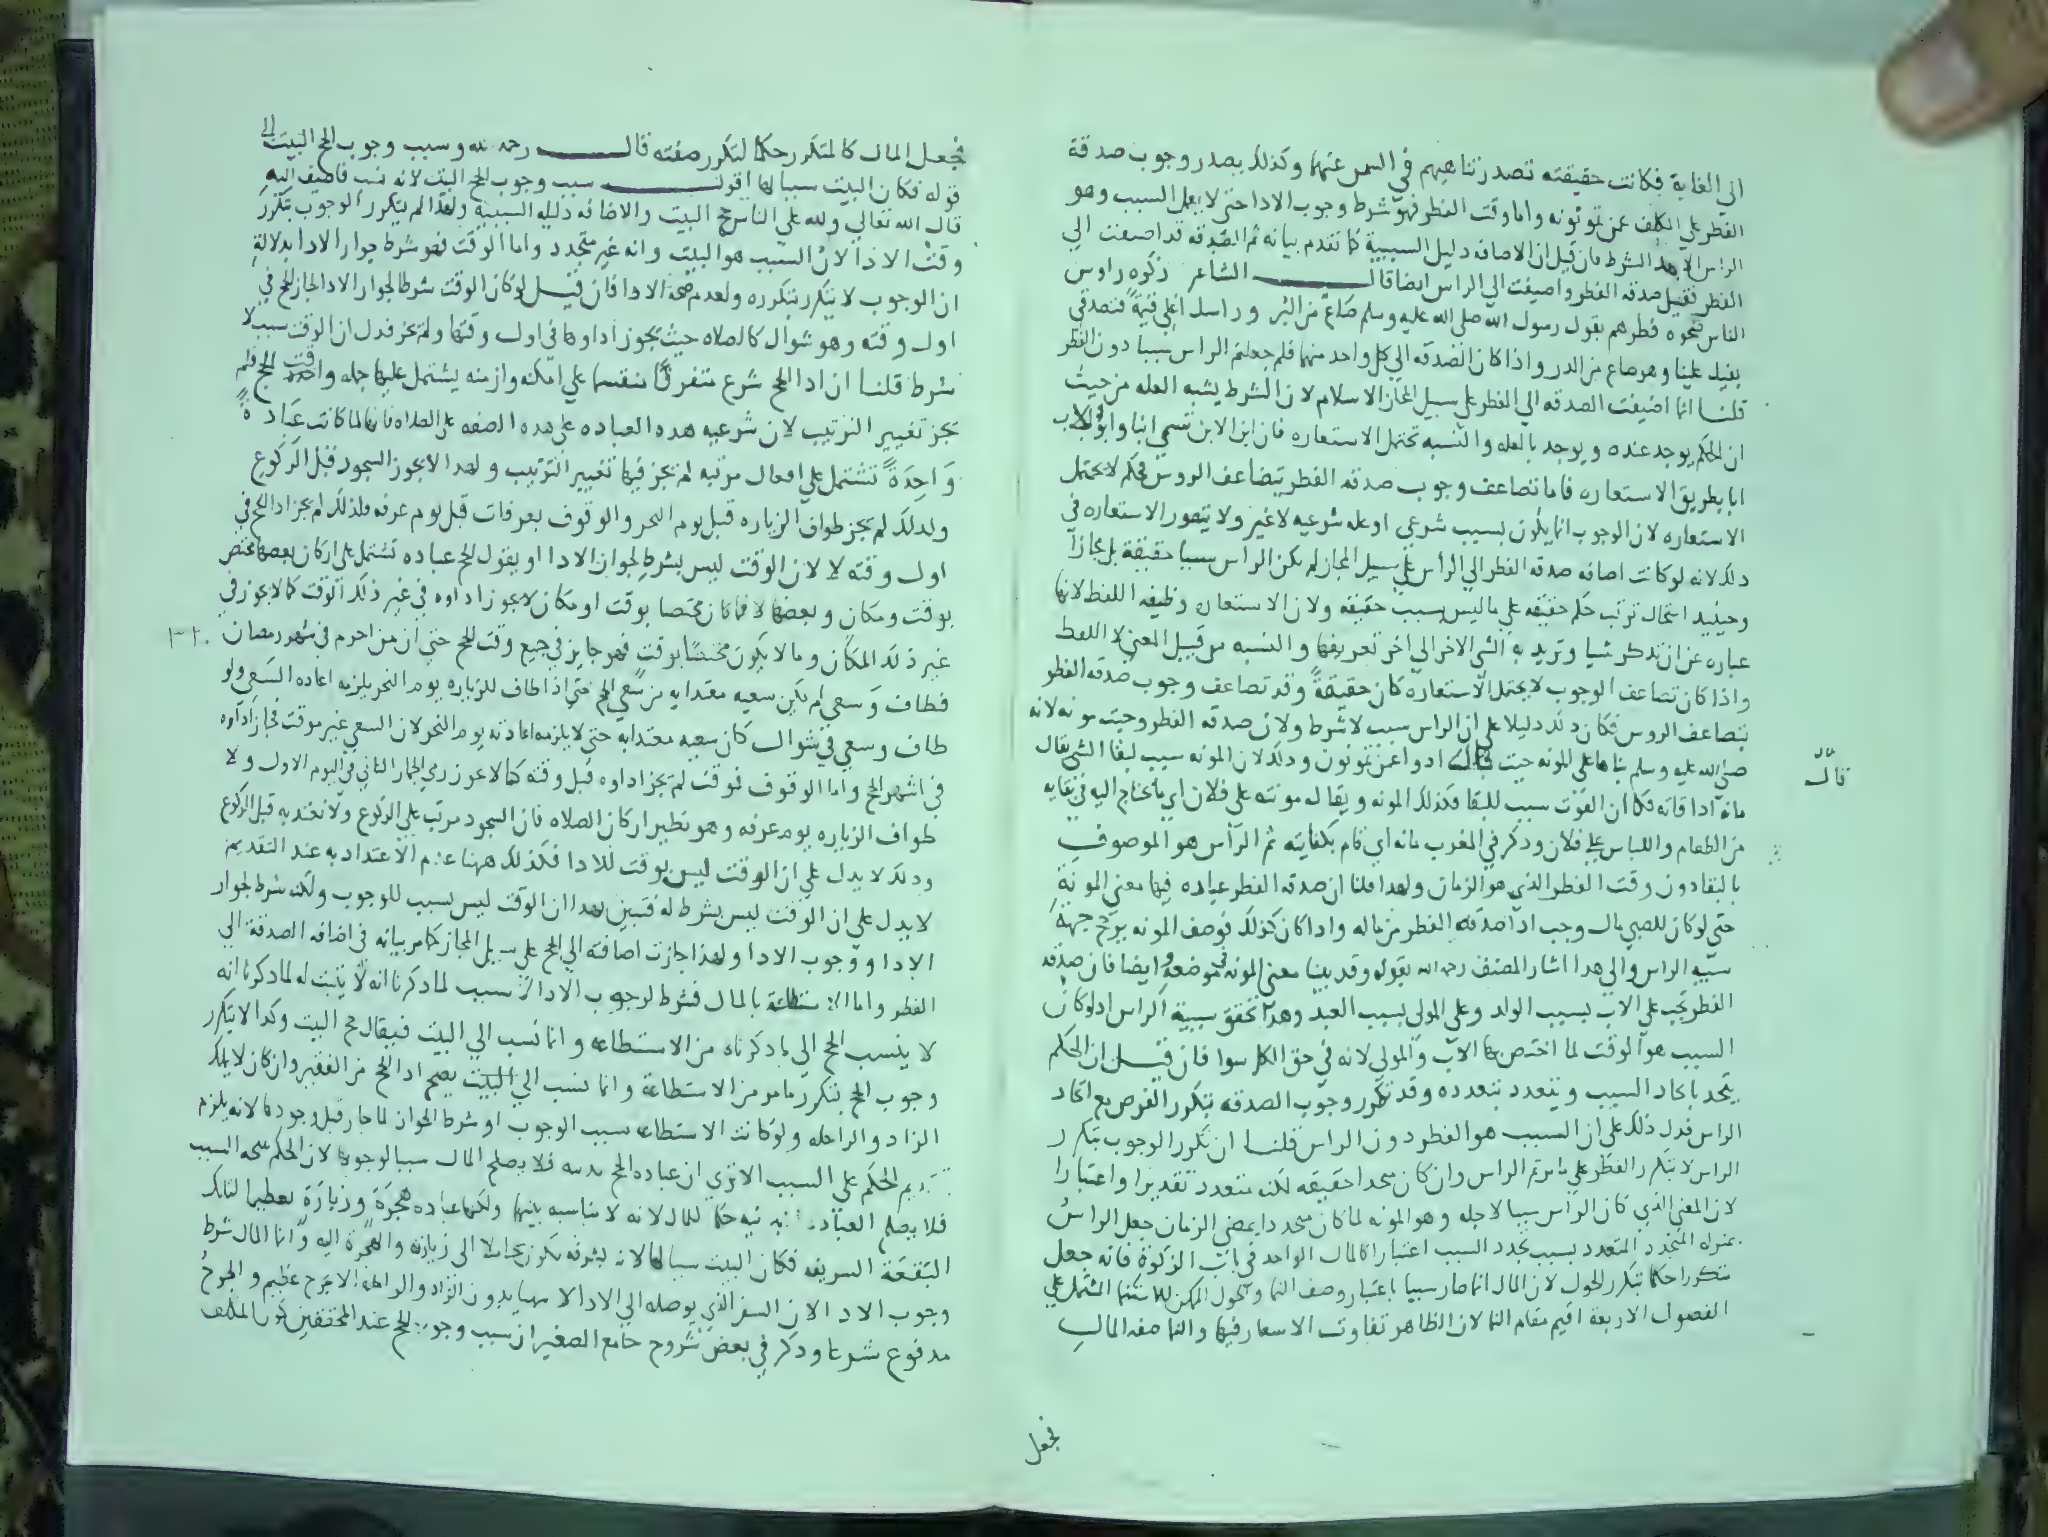 الى الغاية فكانت حقيقته تصدر تناهيهم في السمن عنها وكذلك يصدر وجوب صدقة
الفطر على المكلف عمن يمونه واما وقت الفطر فهو شرط وجوب الادا حتى لا يعمل السبب وهو
الراس الا بهذا الشرط فان قيل ان الاضافه دليل السببية كما تقدم بيانه ثم الصدقه قد اضيفت الى
الفطر فقيل صدقه الفطر واضيفت الى الراس ايضا قال الشاعر زكوه راوس
الناس ضحوه فطرهم بقول رسول الله صلى الله عليه وسلم صاع من البر وراسل اغلى قيمة فتصدقي
بفيك علينا وهو صاع من الدر واذا كان الصدقه الى كل واحد منهما فلم جعلتم الراس سببا دون الفطر
قلنا انما اضيفت الصدقه الى الفطر على سبيل المجاز لان الشرط يشبه العله من حيث
ان الحكم يوجد عنده ويوجد بالعله والنسبه تحتمل الاستعاره فان ابن الابن تسمى ابنا وابو الاب
ابا بطريق الاستعاره فاما تضاعف وجوب صدقه الفطر بتضاعف الروس فحكم لا يحتمل
الاستعاره لان الوجوب انما يكون بسبب شرعي او عله شرعيه لا غير ولا يتصور الاستعاره في
ذلك لانه لو كانت اضافه صدقه الفطر الى الراس على سبيل المجاز لم يكن الراس سببا حقيقة بل مجازا
وحينيد استحال ترتب حكم حقيقه على ما ليس بسبب حقيقه ولان الاستعاره وظيفه اللفظ لانها
عباره عن ان تذكر شيا وتريد به الشي الاخر الى اخر تعريفها والنسبه من قبيل المعنى لا اللفظ
واذا كان تضاعف الوجوب لا يحتمل الاستعارة كان حقيقة وقد تضاعف وجوب صدقه الفطر
بتضاعف الروس فكان ذلك دليلا على ان الراس سبب لا شرط ولان صدقه الفطر وجبت مونه لانه
صلى الله عليه وسلم بناها على المونه حيث قال ادوا عمن تمونون وذلك لان المونه سبب لبقا الشي يقال
قال
مانه اذا قاته فكما ان القوت سبب للبقا فكذلك المونه ويقال له مونته على فلان اي ما يحتاج اليه في بقايه
من الطعام واللباس على فلان وذكر في المغرب مانه اي قام بكفايته ثم الراس هو الموصوف
بالبقا دون وقت الفطر الذي هو الزمان ولهذا قلنا ان صدقه الفطر عباده فيها معنى المونة
حتى لو كان للصبي مال وجب ادا صدقه الفطر من ماله واذا كان كذلك فوصف المونه يرجح جهة
سببيه الراس والى هذا اشار المصنف رحمه الله بقوله وقد بينا معنى المونه في موضعه وايضا فان صدقه
الفطر تجب على الاب بسبب الولد وعلى المولى بسبب العبد وهذا تحقق سببية الراس اذ لو كان
السبب هو الوقت لما اختص بها الاب والمولى لانه في حق الكل سوا فان قيل ان الحكم
يتحد باتحاد السبب ويتعدد بتعدده وقد تكرر وجوب الصدقه بتكرر الفرض مع اتحاد
الراس فدل ذلك على ان السبب هو الفطر دون الراس قلنا ان تكرر الوجوب بتكرر
الراس لا بتكرر الفطر على ما مر ثم الراس وان كان متحدا حقيقه لكنه متعدد تقديرا واعتبارا
لان المعنى الذي كان الراس سببا لاجله وهو المونه لما كان متجددا بمضي الزمان جعل الراس
بمنزله المتجدد المتعدد بسبب تجدد السبب اعتبارا كالمال الواحد في باب الزكوة فانه جعل
متكررا حكما بتكرر الحول لان المال انما صار سببا باعتبار وصف النما والحول الممكن للاستنما المشتمل على
الفصول الاربعة اقيم مقام النما لان الظاهر تفاوت الاسعار فيها والنما صفه المال
فجعل
فجعل المال كالمتكرر حكما لتكرر صفته قال رحمه الله وسبب وجوب الحج البيت الى
قوله فكان البيت سببا لها اقول سبب وجوب الحج البيت لانه نسب فاضيف اليه
قال الله تعالى ولله على الناس حج البيت والاضافه دليله السببية ولهذا لم يتكرر الوجوب بتكرر
وقت الادا لان السبب هو البيت وانه غير متجدد واما الوقت فهو شرط جواز الادا بدلالة
ان الوجوب لا يتكرر بتكرره ولعدم صحة الادا فان قيل لو كان الوقت شرطا لجواز الادا لجاز الحج في
اول وقته وهو شوال كالصلاه حيث يجوز اداوها في اول وقتها ولم يجز فدل ان الوقت سبب لا
شرط قلنا ان ادا الحج شرع متفرقا منقسما على امكنه وازمنه يشتمل عليها جمله واحدة وقت الحج فلم
يجز تغيير الترتيب لان شرعيه هده العباده على هده الصفه على الصلاه فانها لما كانت عبادة
واحدة تشتمل على افعال مرتبه لم يجز فيها تغيير الترتيب ولهدا لا يجوز السجود قبل الركوع
ولذلك لم يجز طواف الزياره قبل يوم النحر والوقوف بعرفات قبل يوم عرفه فلذلك لم يجز ادا الحج في
اول وقته لا لان الوقت ليس بشرط لجواز الادا او يقول الحج عباده تشتمل على اركان بعضها مختص
بوقت ومكان وبعضها لا فما كان مختصا بوقت او مكان لا يجوز اداوه في غير ذلك الوقت كما لا يجوز في
غير ذلك المكان وما لا يكون مختصا بوقت فهو جايز في جميع وقت الحج حتى ان من احرم في شهر رمضان
فطاف وسعى لم يكن سعيه معتدا به من سعي الحج حتى اذا طاف للزياره يوم النحر يلزمه اعاده السعي ولو
طاف وسعى في شوال كان سعيه معتدا به حتى لا يلزمه اعادته يوم النحر لان السعي غير موقت فجاز اداوه
في اشهر الحج واما الوقوف فموقت لم يجز اداوه قبل وقته كما لا يجوز رمي الجمار الثاني في اليوم الاول ولا
طواف الزياره يوم عرفه وهو نظير اركان الصلاه فان السجود مرتب على الركوع ولا نعتد به قبل الركوع
وذلك لا يدل على ان الوقت ليس بوقت للادا فكذلك ههنا عدم الاعتداد به عند التقديم
لا يدل على ان الوقت ليس بشرط له فتبين بهدا ان الوقت ليس بسبب للوجوب ولكنه شرط لجواز
الادا ووجوب الادا ولهذا جازت اضافته الى الحج على سبيل المجاز كما مر بيانه في اضافه الصدقة الى
الفطر واما الاستطاعة بالمال فشرط لوجوب الادا لا سبب لما ذكرنا انه لا يثبت له لما ذكرنا انه
لا ينسب الحج الى ما ذكرناه من الاستطاعه وانما نسب الى البيت فيقال حج البيت وكذا لا يتكرر
وجوب الحج بتكرر ما مر من الاستطاعة وانما نسب الى البيت يصح ادا الحج من الفقير وان كان لا يملك
الزاد والراحله ولو كانت الاستطاعه سبب الوجوب او شرط الجواز لما جاز قبل وجودها لانه يلزم
تقديم الحكم على السبب الا ترى ان عباده الحج بدنيه فلا يصلح المال سببا لوجوبها لان الحكم نتيجه السبب
فلا يصلح العباده البدنيه حكما للمال لانه لا مناسبه بينهما ولكنها عباده هجرة وزيارة تعظيما لتلك
البقعة الشريفه فكان البيت سببا لها لانه بشرفه الى زيارته والهجرة اليه وانما المال شرط
وجوب الادا لان السفر الذي يوصله الى الادا لا يتهيا بدون الزاد والراحله الا بحرج عظيم والحرج
مدفوع شرعا وذكر في بعض شروح جامع الصغير ان سبب وجوب الحج عند المحققين كون المكلف